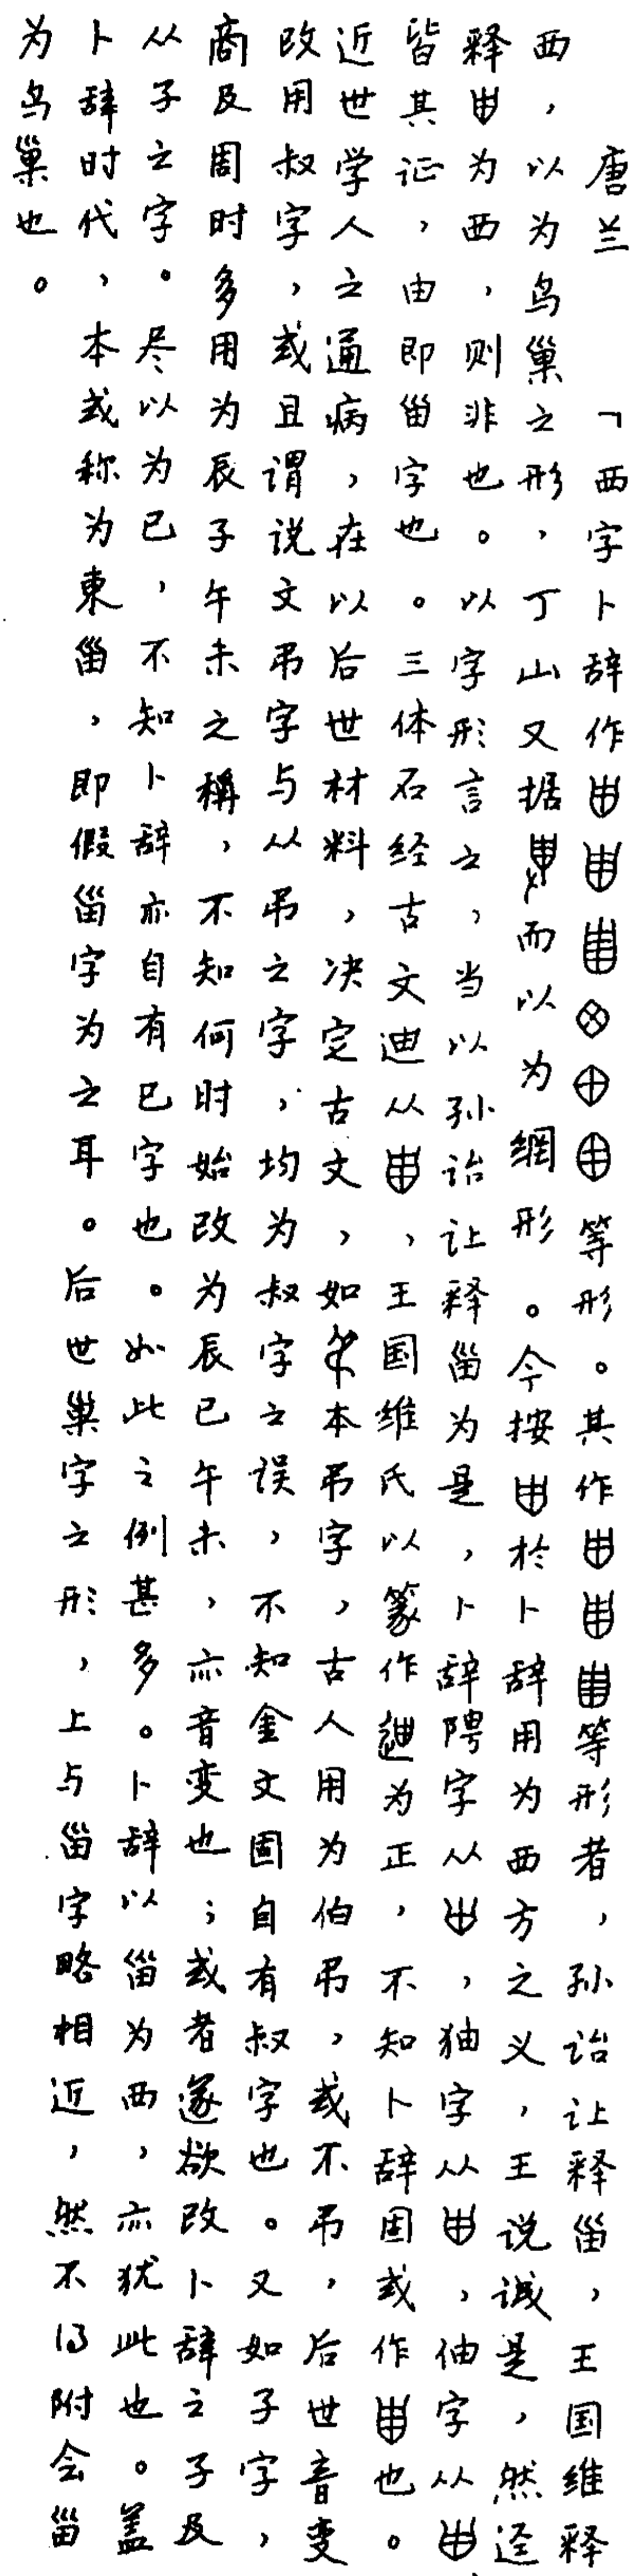 唐兰 「西字卜辞作等形。其作等形者，孙诒让释甾，王国维释
西，以为鸟巢之形，丁山又据而以为網形。今按於卜辞用为西方之义，王说诚是，然迳
释为西，则非也。以字形言之，当以孙诒让释甾为是，卜辞聘字从，㹨字从，伷字从
皆其证，由即甾字也。三体石经古文迪从，王国维氏以篆作为正，不知卜辞固或作也。
近世学人之通病，在以后世材料，决定古文，如本弔字，古人用为伯弔，或不弔，后世音变
改用叔字，或且谓说文弔字与从弔之字，均为叔字之误，不知金文固自有叔字也。又如子字，
商及周时多用为辰子午未之稱，不知何时始改为辰巳午未，亦音变也；或者遂欲改卜辞之子及
从子之字。尽以为巳，不知卜辞亦自有巳字也。如此之例甚多。卜辞以甾为西，亦犹此也。盖
卜辞时代，本或称为東甾，即假甾字为之耳。后世巢字之形，上与甾字略相近，然不得附会甾
为鸟巢也。